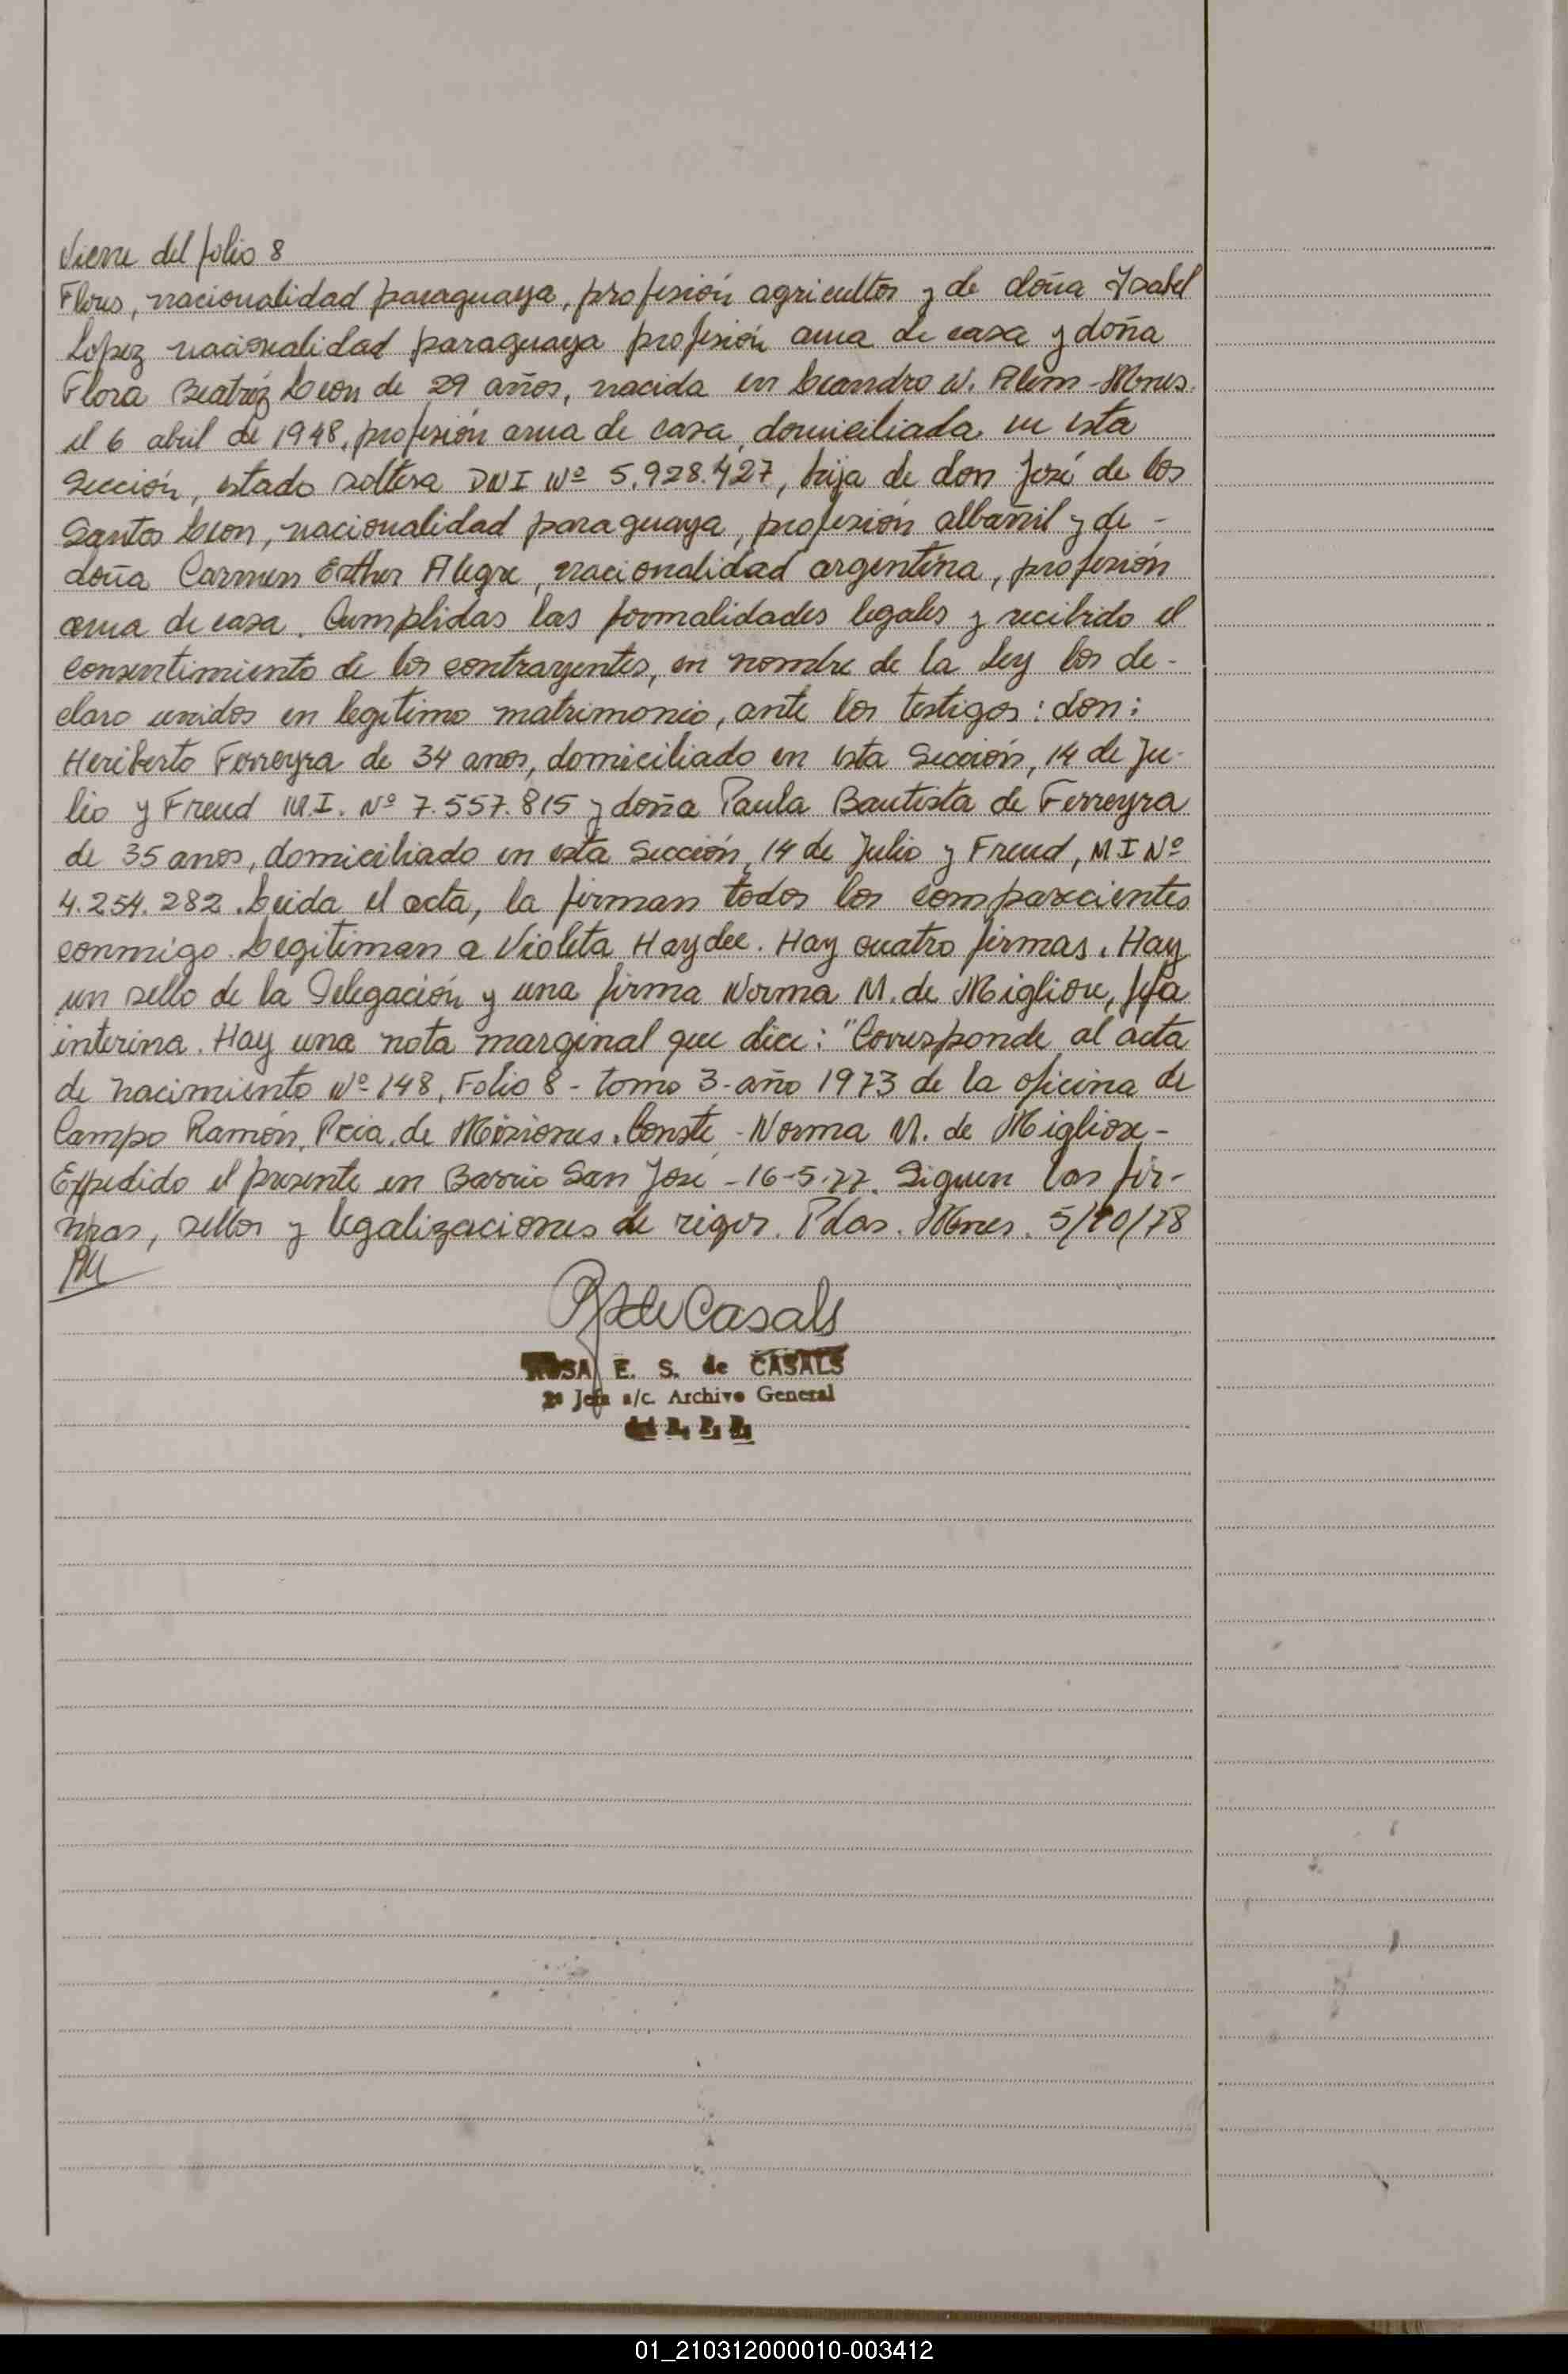 Viene del folio 8
Flores, nacionalidad paraguaya, profesión agricultor y de doña Ysabel
Lopez nacionalidad paraguaya profesión ama de casa y doña
Flora Beatriz Leon de 29 años, nacida en Leandro N. Alem - Mnes.
el 6 abril de 1948, profesión ama de casa, domiciliada en esta
Sección, estado soltera DNI Nº 5.928.427, hija de don José de los
Santos Leon, nacionalidad paraguaya, profesión albañil y de -
doña Carmen Esther Alegre, nacionalidad argentina, profesión
ama de casa. Cumplidas las formalidades legales y recibido el
consentimiento de los contrayentes, en nombre de la Ley los de-
claro unidos en legitimo matrimonio, ante los testigos: don:
Heriberto Ferreyra de 34 anos, domiciliado en esta Sección, 14 de Ju-
lio y Freud M.I. Nº 7.557.815 y doña Paula Bautista de Ferreyra
de 35 anos, domiciliado en esta Sección, 14 de Julio y Freud, M I Nº
4.254.282. Leida el acta, la firman todos los comparecientes
conmigo. Legitiman a Violeta Haydee. Hay cuatro firmas. Hay
un sello de la Delegación y una firma Norma M. de Migliore, Jefa
interina. Hay una nota marginal que dice: "Corresponde al acta
de nacimiento Nº 148, Folio 8 - tomo 3 - año 1973 de la oficina de
Campo Ramón, Pcia. de Misiones. Conste - Norma M. de Migliore -
Expedido el presente en Barrio San José - 16-5-77. Siguen las fir-
mas, sellos y legalizaciones de rigor. Pdas. Mnes. 5/10/78
R de Casals
ROSA E. S. de CASALS
2ª Jefa a/c. Archivo General
del R. P. P.
01_210312000010-003412